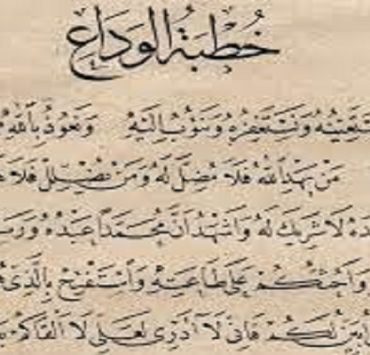 خُطْبَةُ الوَدَاعِ
نَسْتَعِينُهُ وَنَسْتَغْفِرُهُ وَنَتُوبُ إِلَيْهِ وَنَعُوذُ بِاللَّهِ
مَنْ يَهْدِ اللَّهُ فَلَا مُضِلَّ لَهُ وَمَنْ يُضْلِلْ فَلَا
لَا شَرِيكَ لَهُ وَأَشْهَدُ أَنَّ مُحَمَّدًا عَبْدُهُ
وَأَحُثُّكُمْ عَلَى طَاعَتِهِ وَأَسْتَفْتِحُ بِالَّذِي
أُبَيِّنْ لَكُمْ فَإِنِّي لَا أَدْرِي لَعَلِّي لَا أَلْقَاكُمْ